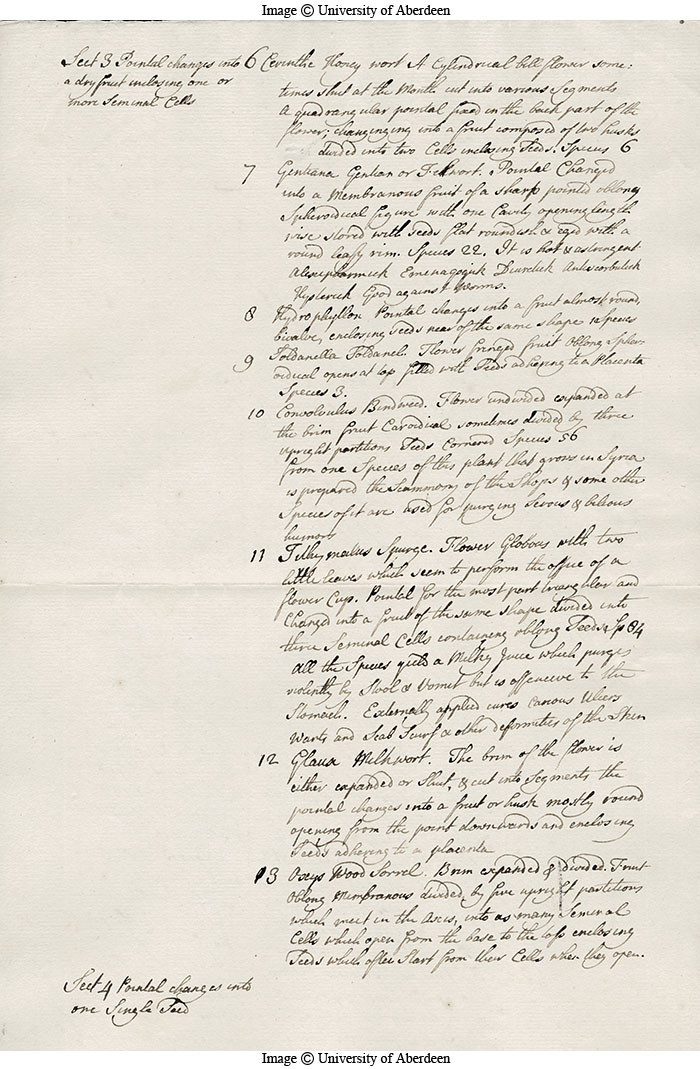 Image © University of Aberdeen
Sect 3 Pointal changes into
a dry fruit inclosing one or
more Seminal Cells
6 Cerinthe Honey wort A Cylindrical bell flower some:
times shut at the Mouth cut into various Segments
A quadrangular pointal fixed in the back part of the
flower; changinging into a fruit composed of two husks
divided into two Cells inclosing Seeds. Species 6
7 Gentiana Gentian or Felwort. Pointal Changed
into a Membranous fruit of a sharp pointed oblong
Spheroidical figure with one Cavity opening length
wise stored with Seeds flat roundish & edged with a
round leafy rim. Species 22. It is hot & astringent
Alexipharmick Emenagogick Diuretick Antiscorbutick
Hysterick Good against Worms.
8 Hydrophyllon Pointal changes into a fruit almost round,
bivalve, enclosing Seeds near of the same shape 1 Species
9 Soldanella Soldanel. Flower fringed fruit Oblong Spher
oidical opens at top filled with Seeds adhering to a Placenta
Species 3.
10 Convolvulus Bindweed. Flower undivided expanded at
the brim fruit Caroidial sometimes divided by three
upright partitions Seeds Cornered Species 56
from one Species of this plant that grows in Syria
is prepared the Scammony of the Shops & some other
Species of it are used for purging Serous & bilious
humors
11 Tithymalus Spurge. Flower Globous with two
little leaves which seem to perform the office of a
flower Cup. Pointal for the most part triangular and
Changed into a fruit of the same shape divided into
three Seminal Cells containing oblong Seeds Sp 84
All the Species yield a Milky Juice which purges
violently by Stool & Vomit but is offencive to the
Stomach. Externally applied cures Carious Ulcers
Warts and Scab Scurf & other deformities of the Skin
12 Glaux Milkwort. The brim of the flower is
either expanded or Shut, & cut into Segments the
pointal changes into a fruit or husk mostly round
opening from the point downwards and enclosing
Seeds adhering to a placenta
13 Oxys Wood Sorrel. Brim expanded & divided. Fruit
Oblong Membranous divided by five upright partitions
which meet in the Axis, into as many Seminal
Cells which open from the base to the top enclosing
Seeds which often Start from their Cells when they open.
Sect 4 Pointal changes into
one Single Seed
Image © University of Aberdeen